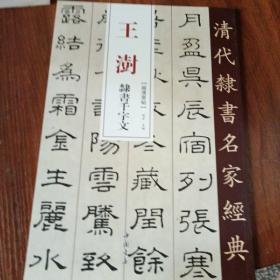 清代隸書名家經典
王澍
隸書千字文
月盈昃辰宿列張寒
冬藏閏餘
陽雲騰致
露結為霜金生麗水